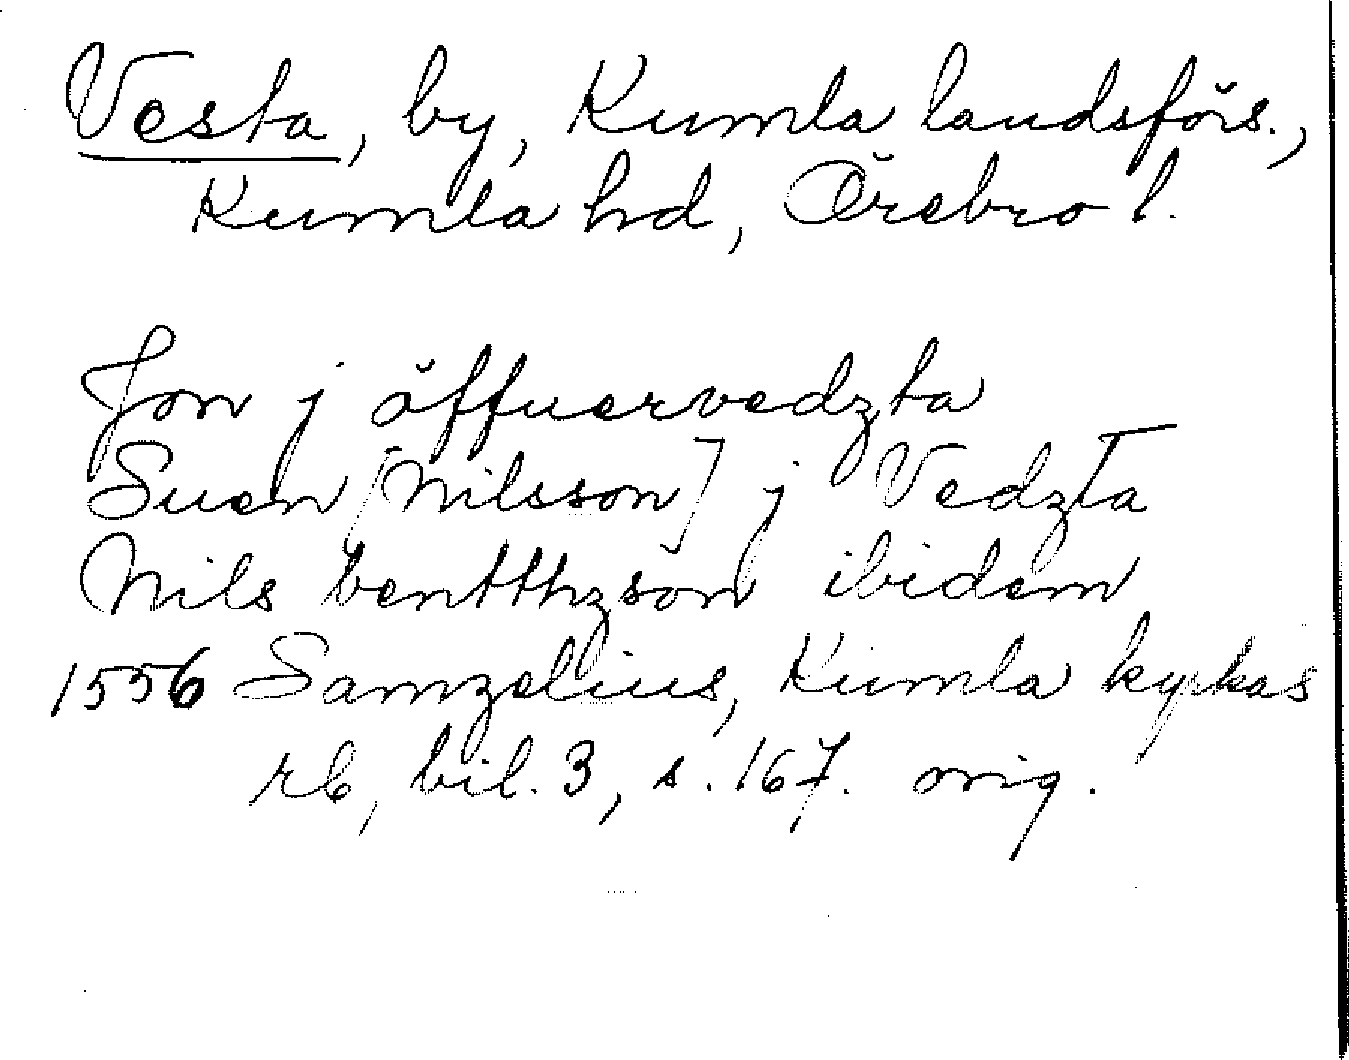 Vesta, by, Kumla landsförs.,
Kumla hd, Örebro l.
Jon j öffuervedzta
Suen [Nilsson] j Vedzta
Nils bentthzson ibidem
1556 Samzelius, Kumla kyrkas
rb, bil. 3, s. 167. orig.